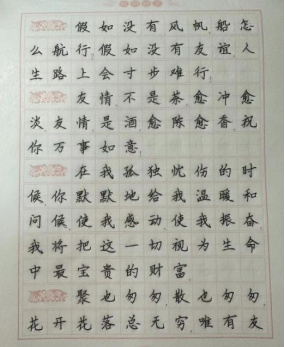 假如没有风帆船怎
么航行假如没有友谊人
生路上会寸步难行
友情不是茶愈冲愈
淡友情是酒愈陈愈香祝
你万事如意
在我孤独忧伤的时
候你默默地给我温暖和
问候使我感动使我振奋
我将把这一切视为生命
中最宝贵的财富
聚也匆匆散也匆匆
花开花落总无穷唯有友